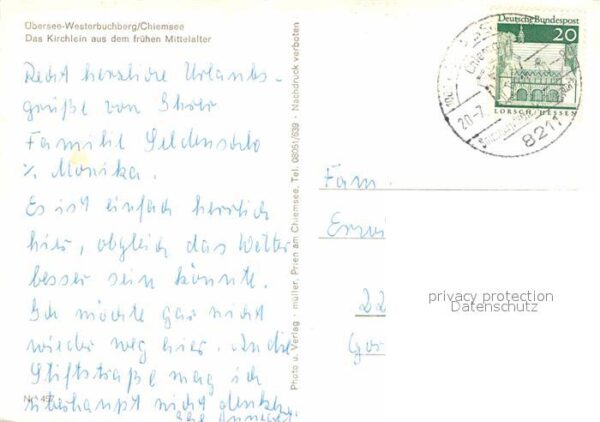 Übersee-Westerbuchberg/Chiemsee
Das Kirchlein aus dem frühen Mittelalter
Recht herzliche Urlaubs-
grüße von Ihrer
Familie
Monika.
Es ist einfach herrlich
hier, obgleich das Wetter
besser sein könnte.
Ich möchte gar nicht
wieder weg hier. An die
Stiftstraße mag ich
überhaupt nicht denken.
Nr. 457
Photo u. Verlag · müller, Prien am Chiemsee, Tel. 08051/639 · Nachdruck verboten
Deutsche Bundespost
20
LORSCH/HESSEN
20.-7.
8211
Fam.
Erwi
22
privacy protection
Datenschutz